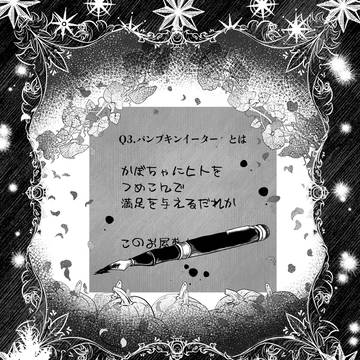 Q3.パンプキンイーター とは
かぼちゃにヒトを
つめこんで
満足を与えるだれか
このお屋敷